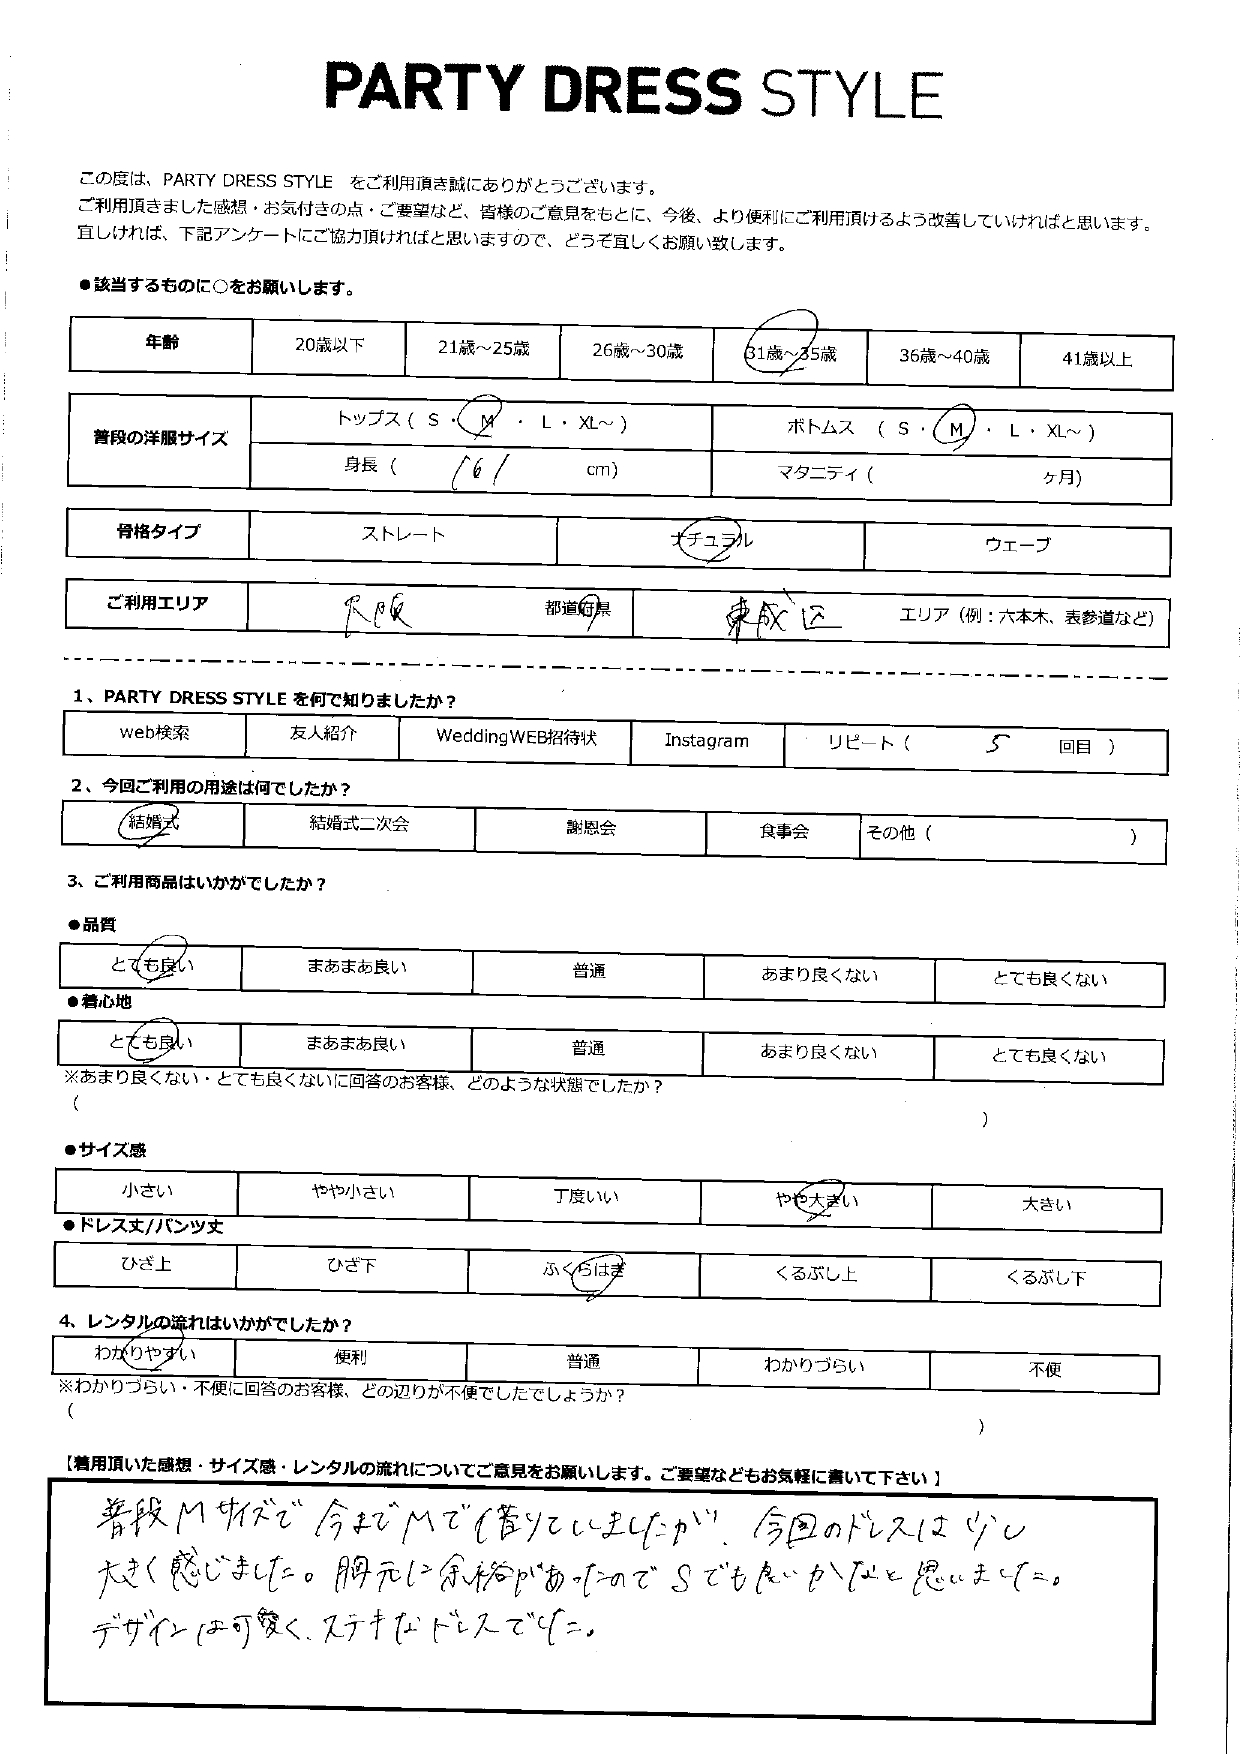 PARTY DRESS STYLE
この度は、PARTY DRESS STYLE をご利用頂き誠にありがとうございます。
ご利用頂きました感想・お気付きの点・ご要望など、皆様のご意見をもとに、今後、より便利にご利用頂けるよう改善していければと思います。
宜しければ、下記アンケートにご協力頂ければと思いますので、どうぞ宜しくお願い致します。
●該当するものに○をお願いします。
年齢 20歳以下 21歳～25歳 26歳～30歳 31歳～35歳 36歳～40歳 41歳以上
普段の洋服サイズ トップス ( S ・ M ・ L ・ XL～ ) ボトムス ( S ・ M ・ L ・ XL～ )
身長 ( 161 cm) マタニティ ( ヶ月)
骨格タイプ ストレート ナチュラル ウェーブ
ご利用エリア 大阪 都道府県 東成区 エリア（例：六本木、表参道など）
1、PARTY DRESS STYLE を何で知りましたか？
web検索 友人紹介 WeddingWEB招待状 Instagram リピート ( 5 回目 )
2、今回ご利用の用途は何でしたか？
結婚式 結婚式二次会 謝恩会 食事会 その他 ( )
3、ご利用商品はいかがでしたか？
●品質
とても良い まあまあ良い 普通 あまり良くない とても良くない
●着心地
とても良い まあまあ良い 普通 あまり良くない とても良くない
※あまり良くない・とても良くないに回答のお客様、どのような状態でしたか？
( )
●サイズ感
小さい やや小さい 丁度いい やや大きい 大きい
●ドレス丈/パンツ丈
ひざ上 ひざ下 ふくらはぎ くるぶし上 くるぶし下
4、レンタルの流れはいかがでしたか？
わかりやすい 便利 普通 わかりづらい 不便
※わかりづらい・不便に回答のお客様、どの辺りが不便でしたでしょうか？
( )
【着用頂いた感想・サイズ感・レンタルの流れについてご意見をお願いします。ご要望などもお気軽に書いて下さい 】
普段Mサイズで今までMで借りていましたが、今回のドレスは少し
大きく感じました。胸元に余裕があったのでSでも良いかなと思いました。
デザインは可愛く、ステキなドレスでした。